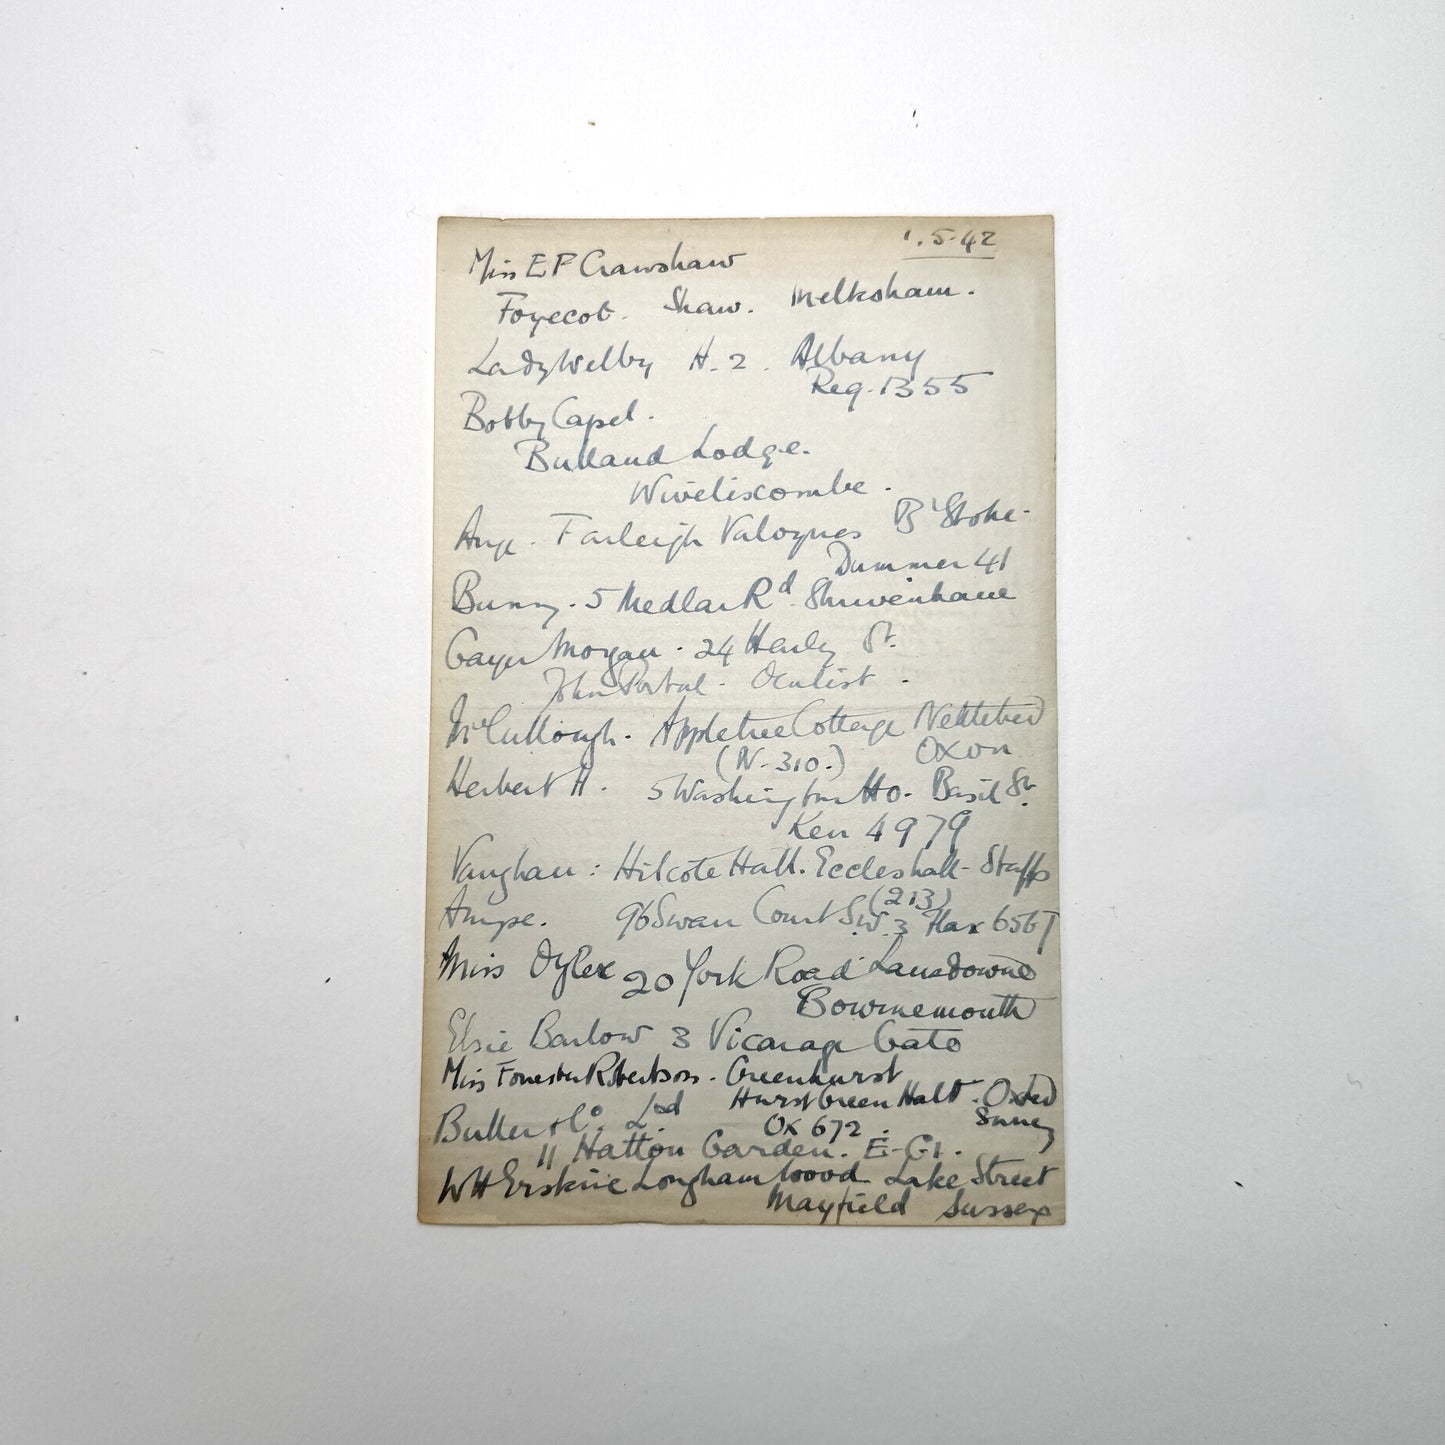 1.5.42
Miss E F Crawshaw
Foyecot. Shaw. Melksham.
Lady Welby H. 2. Albany
Reg. 1355
Bobby Capel.
Bulland Lodge.
Wiveliscombe.
Farleigh Valoynes B'Stoke
Dummer 41
Bunny. 5 Medlar Rd. Shrivenham
Morgan. 24 Harley St.
John Portal. Oculist.
McCullough. Appletree Cottage Nettlebed
(N. 310.) Oxon
Herbert H. 5 Washington Ho. Basil St.
Ken 4979
Vaughan: Hilcote Hall. Eccleshall- Staffs
(213)
96 Swan Court S.W.3 Flax 6567
Miss 20 York Road Lansdowne
Bournemouth
Elsie Barlow 3 Vicarage Gate
Miss Forrester Robertson. Greenhurst
Hurst Green Halt. Oxted
Butler & Co. Ltd OX 672. Surrey
11 Hatton Garden. E.C.1.
WH Erskine Longham Wood Lake Street
Mayfield Sussex